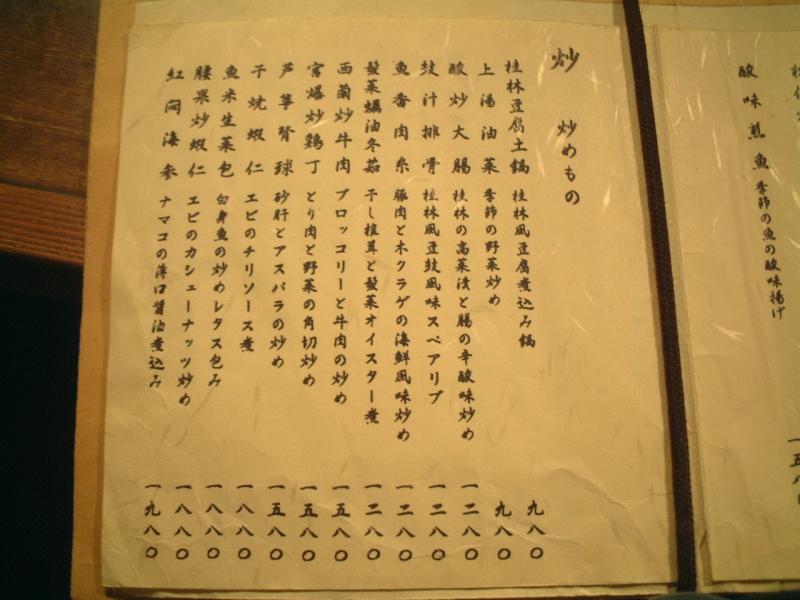 酸味煎魚 季節の魚の酸味揚げ
炒 炒めもの
桂林豆腐土鍋 桂林風豆腐煮込み鍋 九八〇
上湯油菜 季節の野菜炒め 九八〇
酸炒大腸 桂林の高菜漬と腸の辛酸味炒め 一二八〇
豉汁排骨 桂林風豆豉風味スペアリブ 一二八〇
魚香肉糸 豚肉と木クラゲの海鮮風味炒め 一二八〇
髮菜蠣油冬茹 干し椎茸と髮菜オイスター煮 一二八〇
西蘭炒牛肉 ブロッコリーと牛肉の炒め 一五八〇
宮爆炒鶏丁 とり肉と野菜の角切炒め 一五八〇
芦筝腎球 砂肝とアスパラの炒め 一五八〇
干焼蝦仁 エビのチリソース煮 一八八〇
魚米生菜包 白身魚の炒めレタス包み 一八八〇
腰果炒蝦仁 エビのカシューナッツ炒め 一八八〇
紅悶海参 ナマコの薄口醤油煮込み 一九八〇